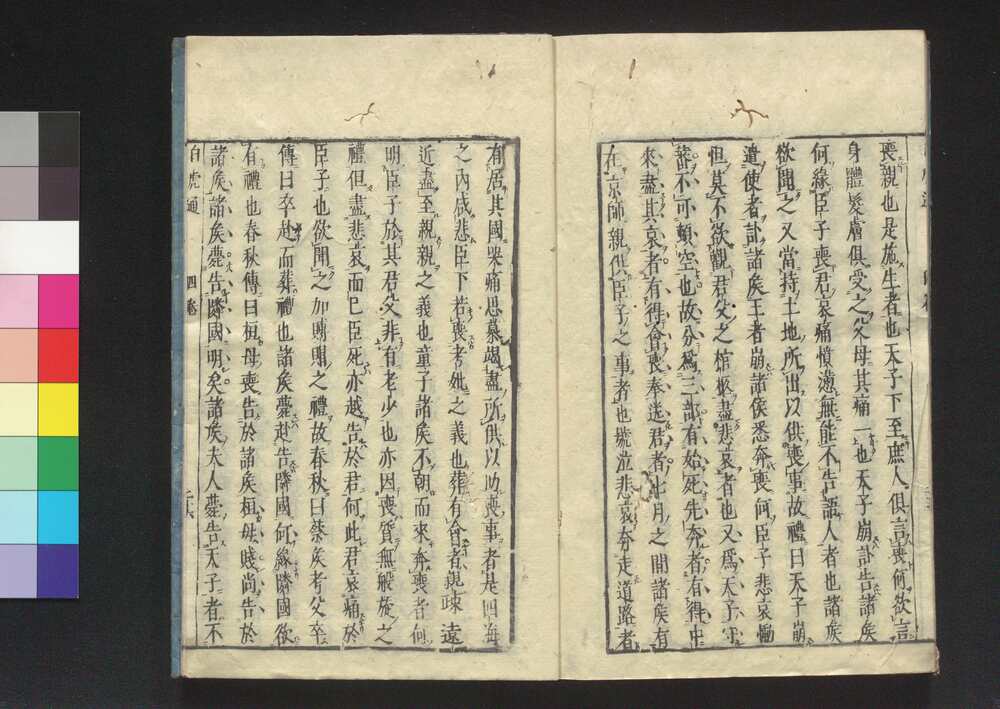 喪親也是施生者也天子下至庶人俱言喪何欲言
身體髮膚俱受之父母其痛一也天子崩訃告諸矦
何緣臣子喪君哀痛憤懣無能不告語人者也諸矦
欲聞之又當持土地所出以供喪事故禮曰天子崩
遣使者訃諸矦王者崩諸侯悉奔喪何臣子悲哀慟
但莫不欲觀君父之棺柩盡悲哀者也又爲天子守
蕃不可頓空也故分爲三部有始死先奔者有得中
來盡其哀者有得會喪奉送君者七月之間諸矦有
在京師親供臣子之事者也號泣悲哀奔走道路者
有居其國哭痛思慕竭盡所供以助喪事者是四海
之內咸悲臣下若喪考妣之義也葬有會者親疎遠
近盡至親親之義也童子諸矦不朝而來奔喪者何
明臣子於其君父非有老少也亦因喪質無般旋之
禮但盡悲哀而已臣死亦越告於君何此君哀痛於
臣子也欲聞之加賻賵之禮故春秋曰蔡矦考父卒
傳曰卒赴而葬禮也諸矦薨赴告隣國何緣隣國欲
有禮也春秋傳曰桓母喪告於諸矦桓母賤尚告於
諸矦諸矦薨告隣國明矣諸矦夫人薨告天子者不
白虎通 四卷